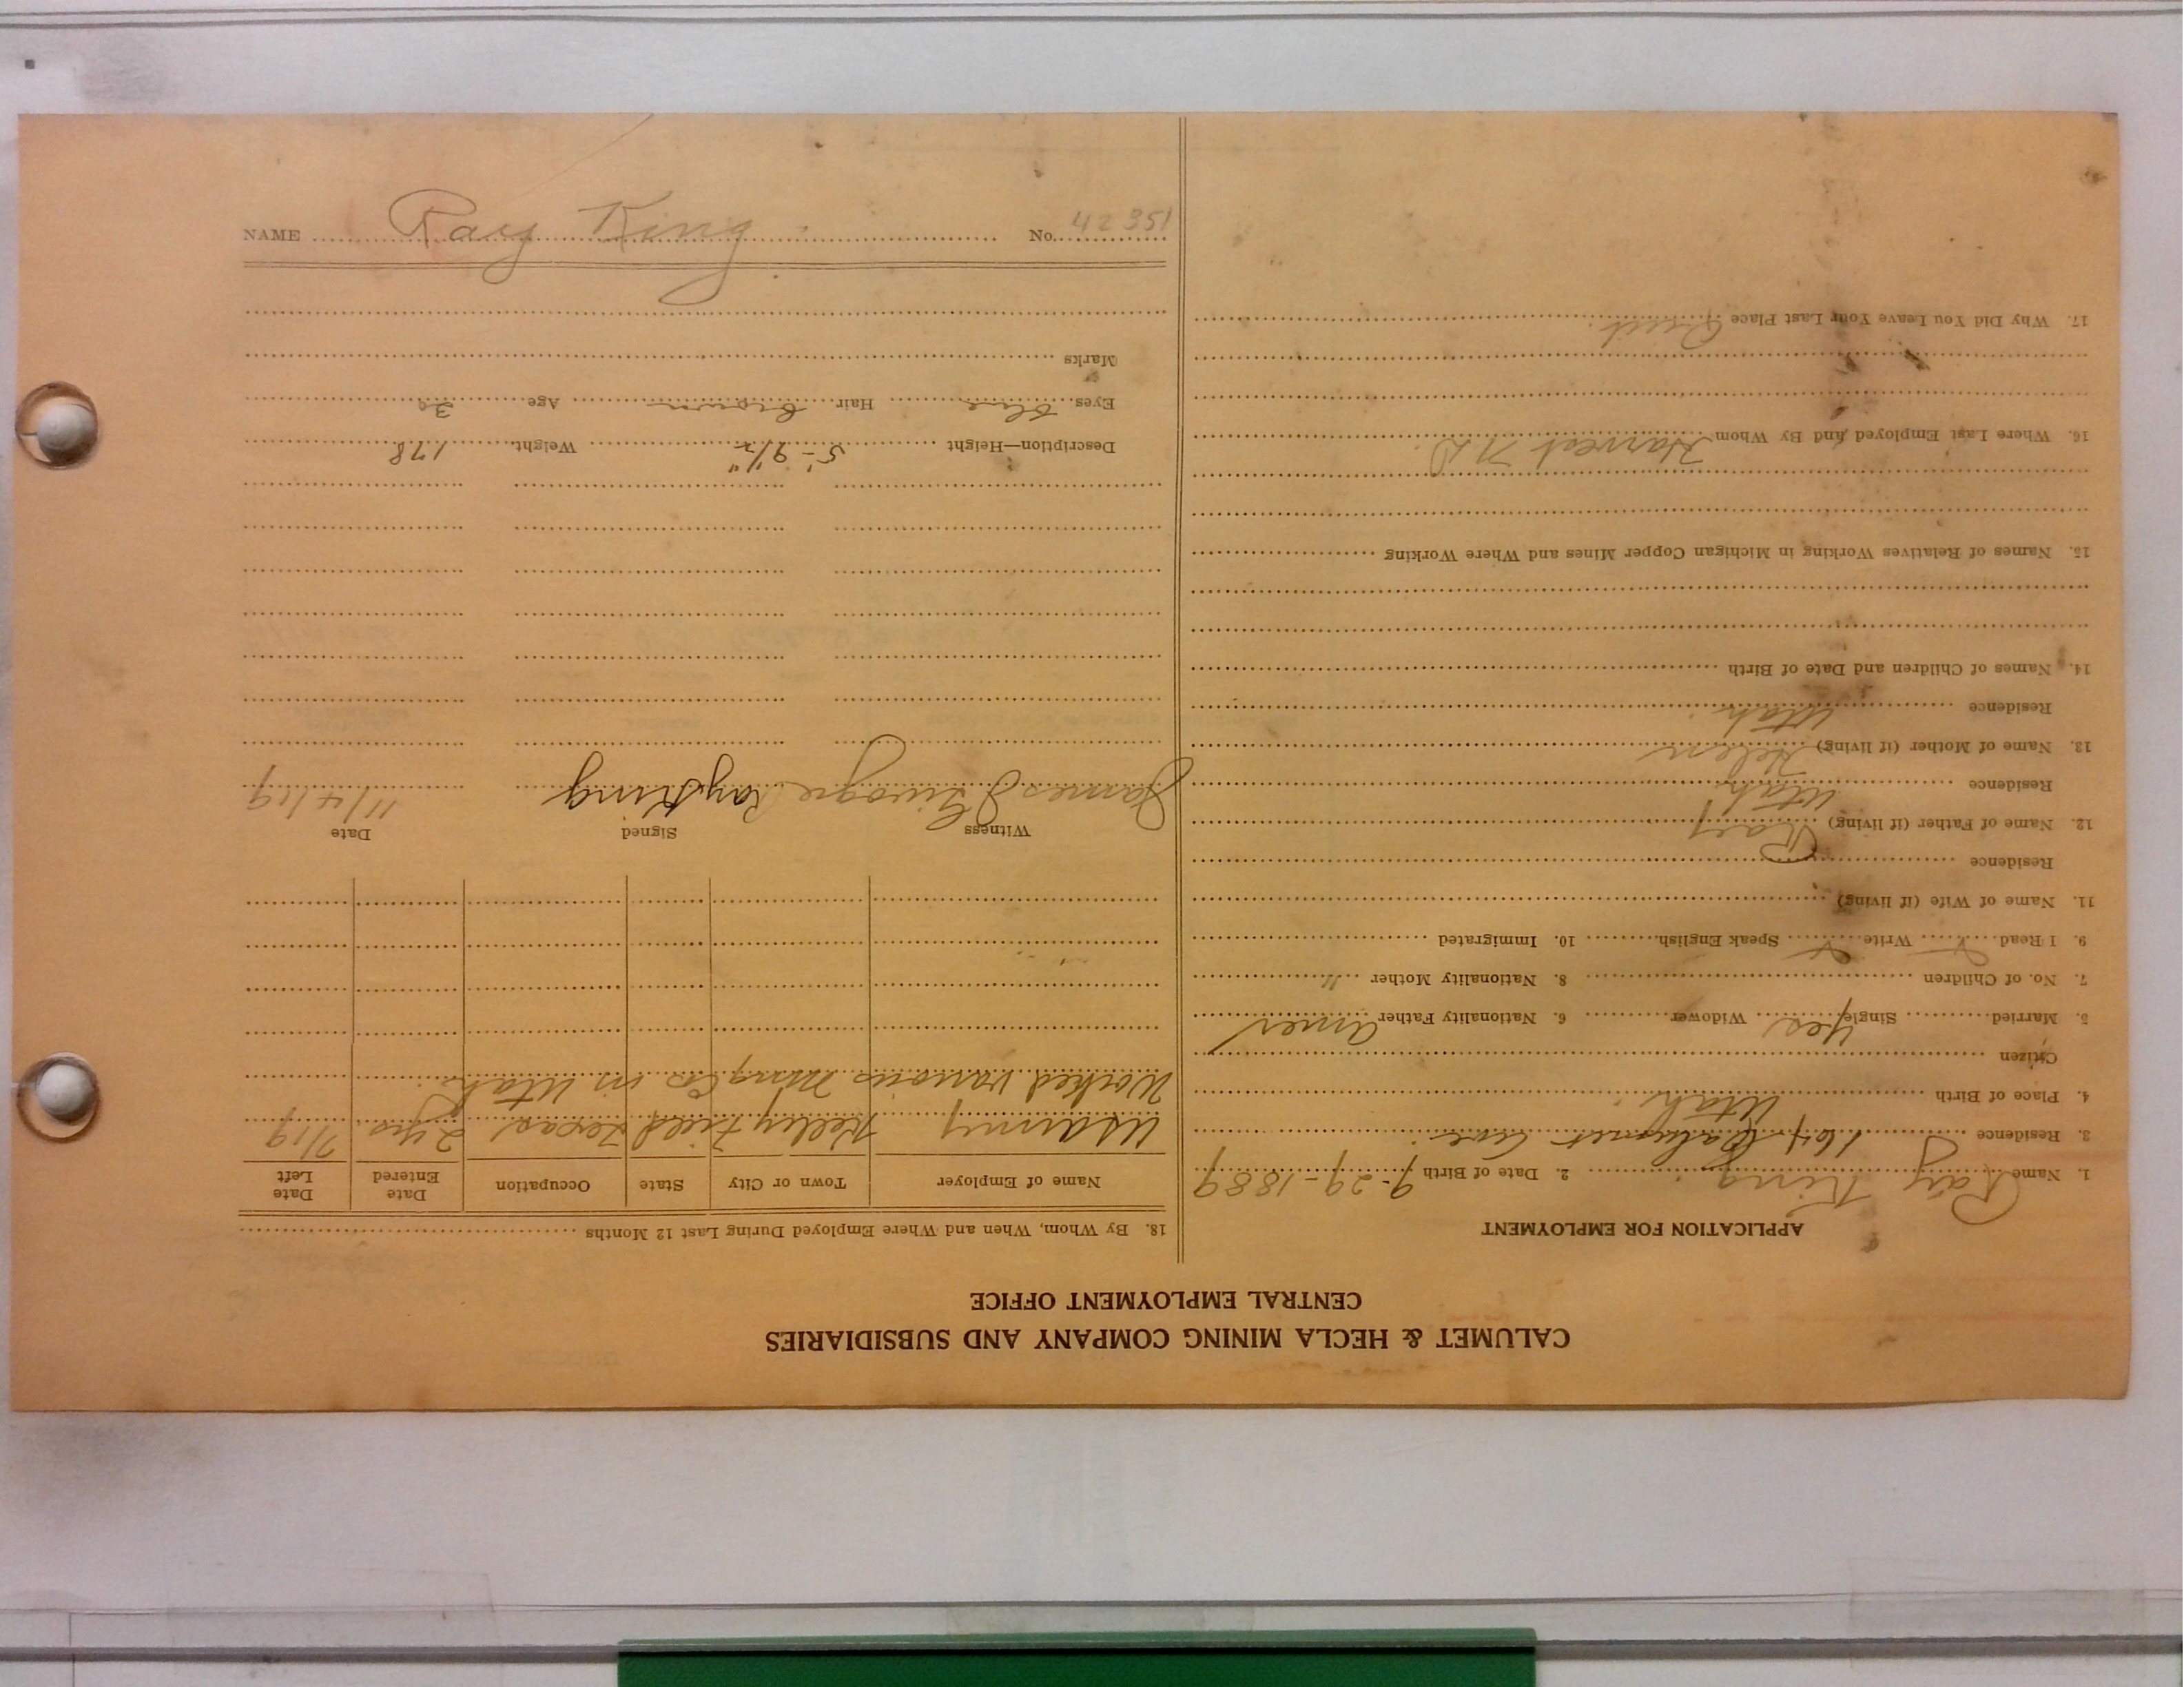 NAME Ray King No. 42351
CALUMET & HECLA MINING COMPANY AND SUBSIDIARIES
CENTRAL EMPLOYMENT OFFICE
APPLICATION FOR EMPLOYMENT
1. Name Ray King 2. Date of Birth 9-29-1889
3. Residence 164 Calumet Ave.
4. Place of Birth Utah.
Citizen
5. Married Single Yes Widower 6. Nationality Father Amer
7. No. of Children 8. Nationality Mother "
9. I Read Write Speak English 10. Immigrated
11. Name of Wife (if living)
Residence
12. Name of Father (if living) Ray
Residence Utah
13. Name of Mother (if living) Helen
Residence Utah.
14. Names of Children and Date of Birth
15. Names of Relatives Working in Michigan Copper Mines and Where Working
16. Where Last Employed and By Whom Harvest N.D.
17. Why Did You Leave Your Last Place Quit.
18. By Whom, When and Where Employed During Last 12 Months
Name of Employer Town or City State Occupation Date Entered Date Left
US Army Kelley Field Texas 2 yrs. 7/19
Worked various Ming Cos in Utah
Witness Signed Date
James Ray King 11/4/19
Description—Height 5'-9 1/2" Weight 178
Eyes blue Hair brown Age 30
Marks